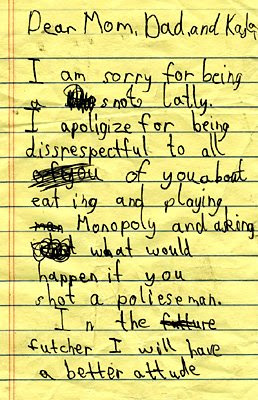 Dear Mom, Dad, and Kayla
I am sorry for being
a snot latly.
I apoligize for being
dissrespectful to all
of you about
eat ing and playing
Monopoly and asking
what would
happen if you
shot a polieseman.
In the
futcher I will have
a better attude